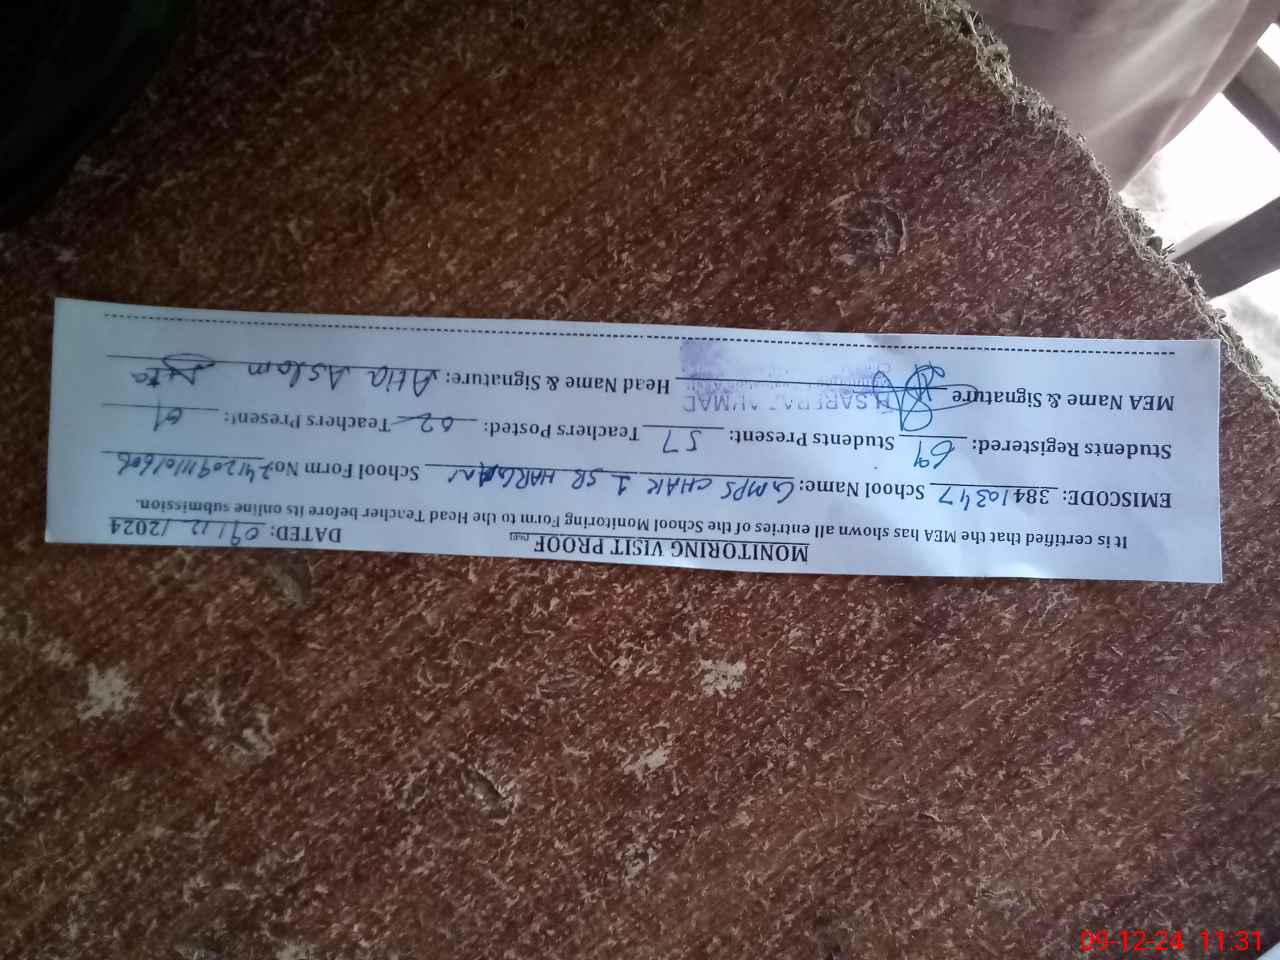 MONITORING VISIT PROOF
DATED: 09/12/2024
It is certified that the MEA has shown all entries of the School Monitoring Form to the Head Teacher before its online submission.
EMISCODE: 38410347 School Name: GMPS CHAK 1 SB School Form No:
Students Registered: 69 Students Present: 57 Teachers Posted: 02 Teachers Present: 01
MEA Name & Signature Head Name & Signature: Atia Aslam
09-12-24 11:31